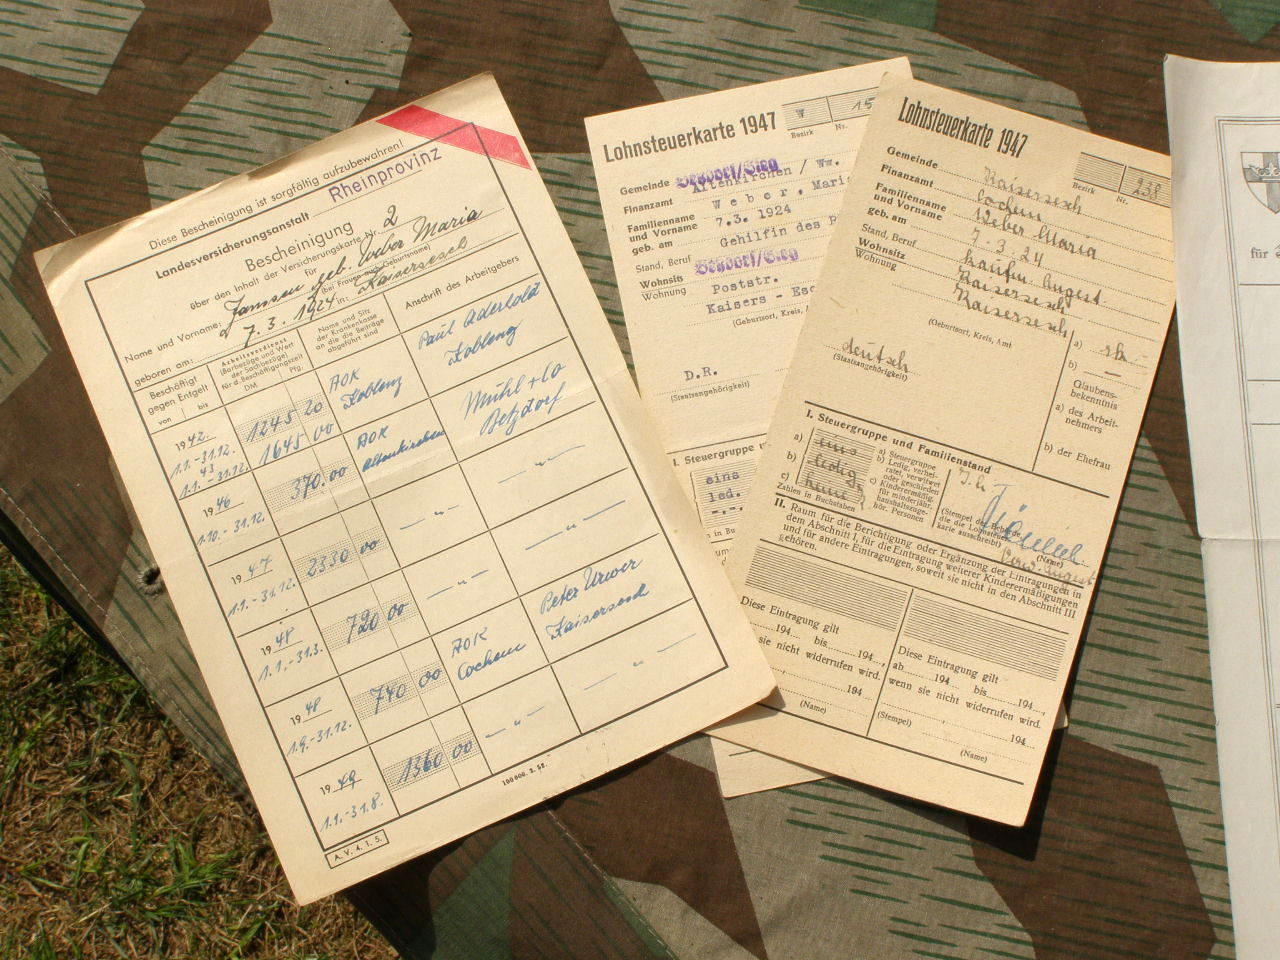 Diese Bescheinigung ist sorgfältig aufzubewahren!
Landesversicherungsanstalt Rheinprovinz
Bescheinigung
über den Inhalt der Versicherungskarte Nr. 2
für
Name und Vorname: Janssen geb. Weber Maria
(bei Frauen auch Geburtsname)
geboren am: 7.3.1924 in: Kaisersesch
Beschäftigt gegen Entgelt
von bis
Arbeitsverdienst
(Barbezüge und Wert der Sachbezüge)
für d. Beschäftigungszeit
DM Pfg.
Name und Sitz der Krankenkasse an die die Beiträge abgeführt sind
Anschrift des Arbeitgebers
1942
1.1.-31.12. 1245 20 AOK Koblenz Paul Aderhold Koblenz
43
1.1.-31.12. 1645 00
1946
1.10.-31.12. 370.00 AOK Altenkirchen Mühl + Co Betzdorf
1947
1.1.-31.12. 2330 00 — " — — " —
1948
1.1.-31.3. 720 00 — " — — " —
1948
1.9.-31.12. 740 00 AOK Cochem Peter Urwer Kaisersesch
1949
1.1.-31.8. 1360 00 — " — — " —
100 000. 2. 52.
A. V. 4. 1. 5.
Lohnsteuerkarte 1947
W 15
Bezirk Nr.
Gemeinde Betzdorf/Sieg
Finanzamt Altenkirchen / Ww.
Familienname und Vorname Weber, Maria
geb. am 7.3. 1924
Stand, Beruf Gehilfin des
Wohnsitz Betzdorf/Sieg
Wohnung Poststr.
Kaisers - Esc
(Geburtsort, Kreis,
D.R.
(Staatsangehörigkeit)
I. Steuergruppe u
eins
led.
-.-.
n in Bu
Lohnsteuerkarte 1947
238
Bezirk Nr.
Gemeinde Kaisersesch
Finanzamt Cochem
Familienname und Vorname Weber Maria
geb. am 7.3.24
Stand, Beruf kaufm. Angest.
Wohnsitz Kaisersesch
Wohnung Kaisersesch
(Geburtsort, Kreis, Amt
deutsch
(Staatsangehörigkeit)
a) rk.
b) —
Glaubensbekenntnis
a) des Arbeitnehmers
b) der Ehefrau
I. Steuergruppe und Familienstand
a) eins
b) ledig
c) keine
Zahlen in Buchstaben
a) Steuergruppe
b) Ledig, verheiratet, verwitwet oder geschieden
c) Kinderermäßig. für minderjähr. haushaltszugehör. Personen
(Stempel der Behörde, die die Lohnsteuerkarte ausschreibt)
(Name)
II. Raum für die Berichtigung oder Ergänzung der Eintragungen in
dem Abschnitt I, für die Eintragung weiterer Kinderermäßigungen
und für andere Eintragungen, soweit sie nicht in den Abschnitt III
gehören.
Diese Eintragung gilt
194 bis 194 ,
sie nicht widerrufen wird.
194
(Name)
Diese Eintragung gilt
ab 194 bis 194 ,
wenn sie nicht widerrufen wird.
194
(Stempel)
(Name)
für